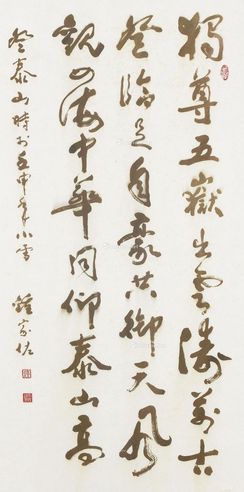 獨尊五嶽出雲濤萬古
登臨足自豪共御天風
觀四海中華同仰泰山高
登泰山時於壬申年小雪 鍾家佐